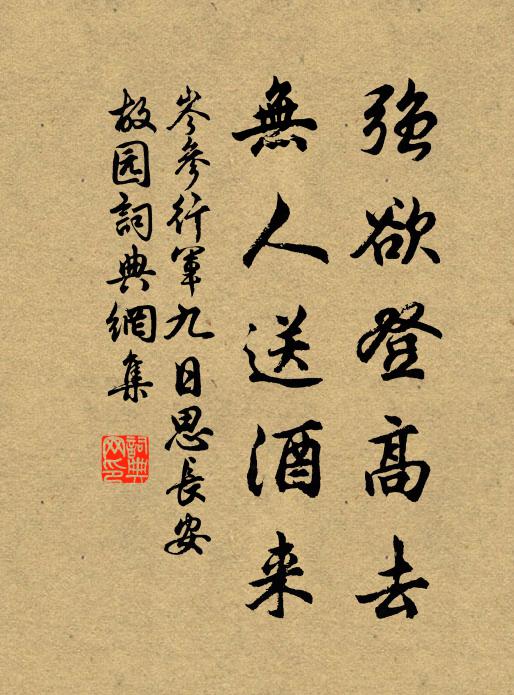 強欲登高去
無人送酒来
岑參行軍九日思長安
故园詞典網集
詞典
网印